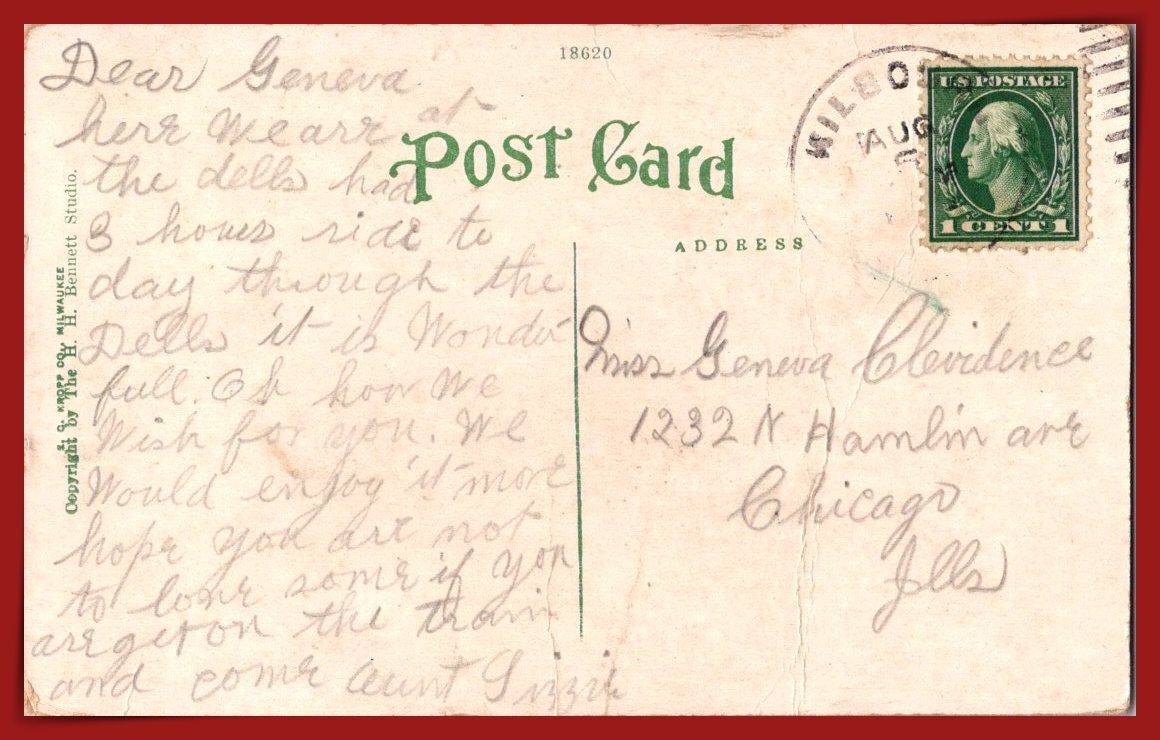 18620
Post Card
ADDRESS
WILBO
AUG
U.S. POSTAGE
1 CENT 1
Dear Geneva
here We are at
the dells had
3 hours ride to
day through the
Dells it is Wonder
full. Oh how We
Wish for you. We
Would enjoy it more
hope you are not
to lone some if you
are get on the train
and come Aunt Lizzie
Miss Geneva Clevidence
1232 N Hamlin ave
Chicago
Ills
E. C. KROPP CO., MILWAUKEE
Copyright by The H. H. Bennett Studio.